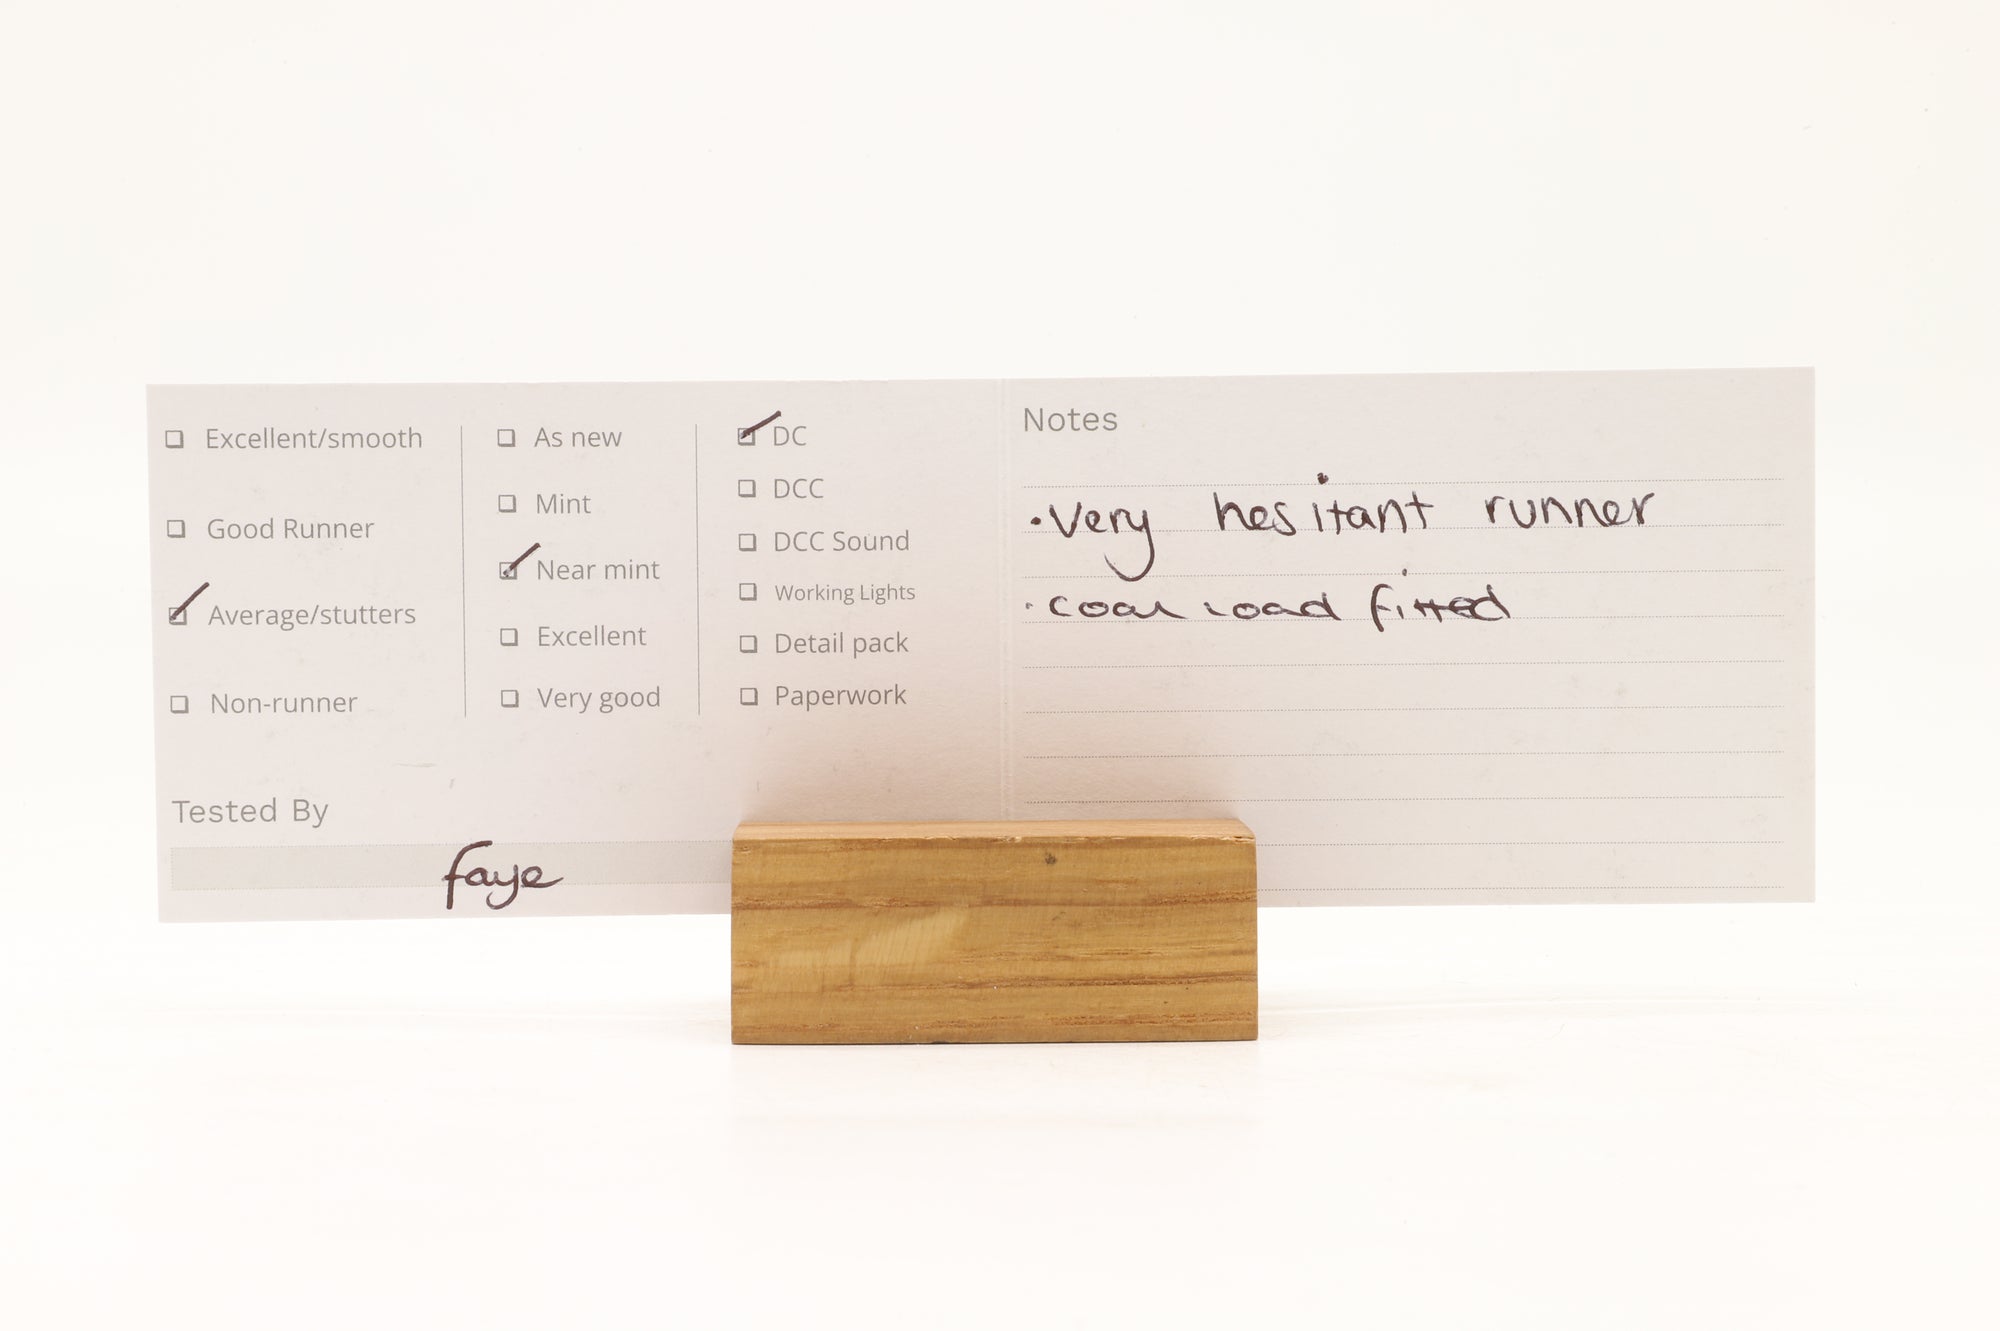 Excellent/smooth
Good Runner
Average/stutters
Non-runner
As new
Mint
Near mint
Excellent
Very good
DC
DCC
DCC Sound
Working Lights
Detail pack
Paperwork
Tested By
faye
Notes
• Very hesitant runner
• coal load fitted